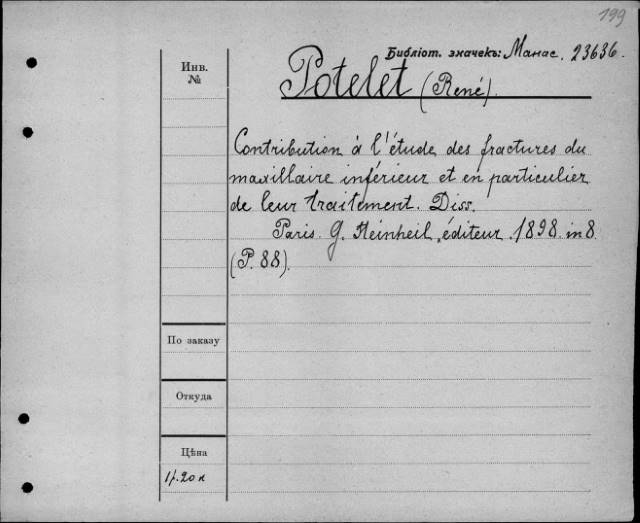 199
Библіот. значекъ: Манас. 23636.
Инв.
№
Potelet (René).
Contribution à l'étude des fractures du
maxillaire inférieur et en particulier
de leur traitement. Diss.
Paris. G. Steinheil, éditeur. 1898. in 8
(P. 88).
По заказу
Откуда
Цѣна
1р. 20 к